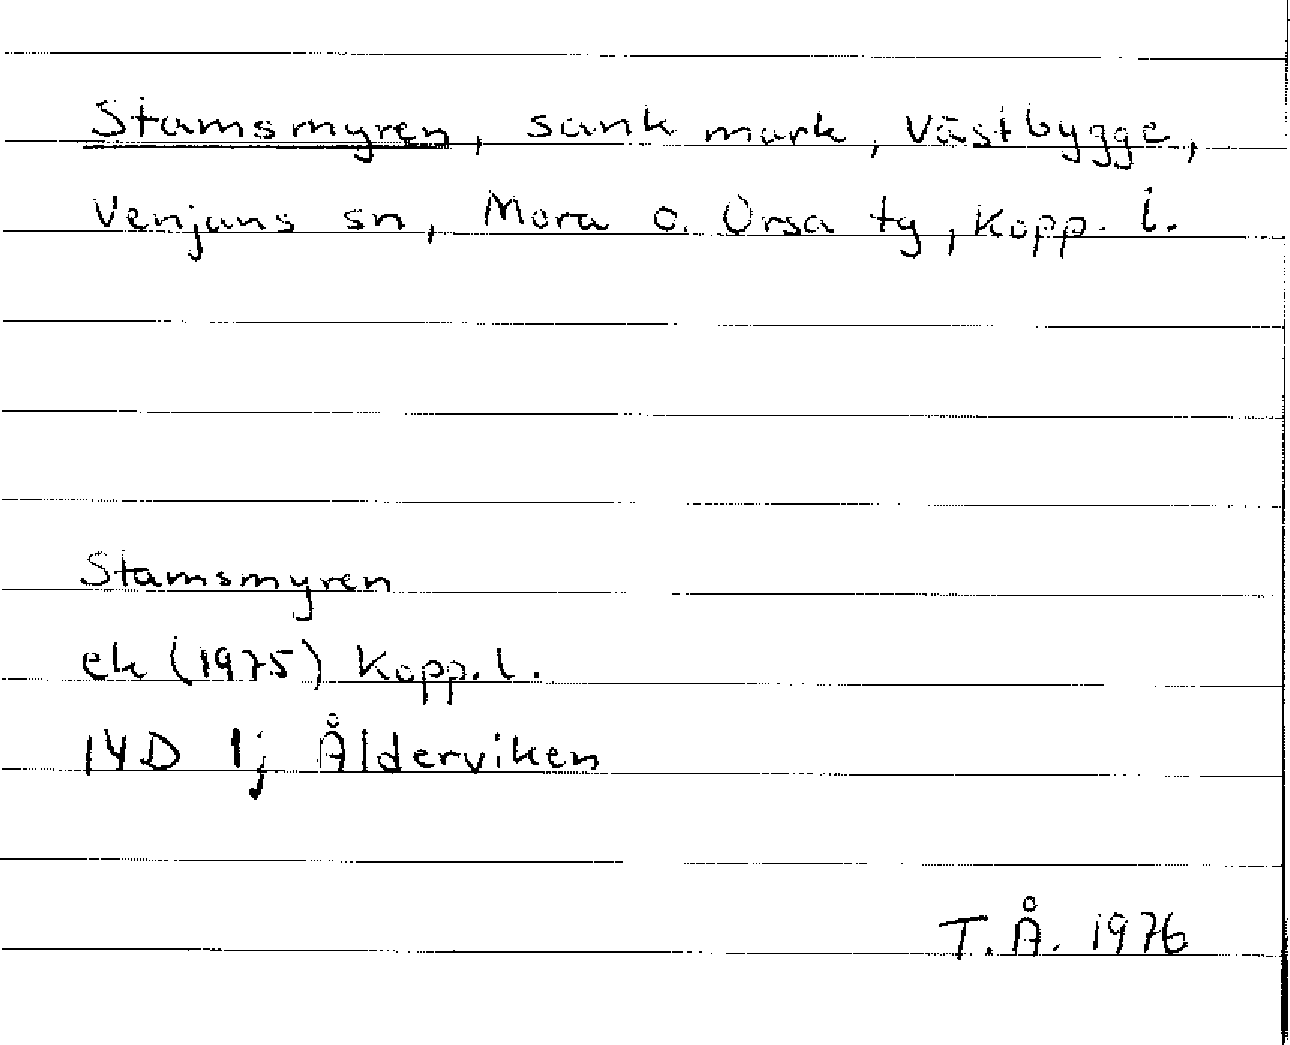 Stamsmyren, sank mark, Västbygge,
Venjans sn, Mora o. Orsa tg, Kopp. l.
Stamsmyren
ek (1975) Kopp. l.
14D 1j Ålderviken
T.Å. 1976